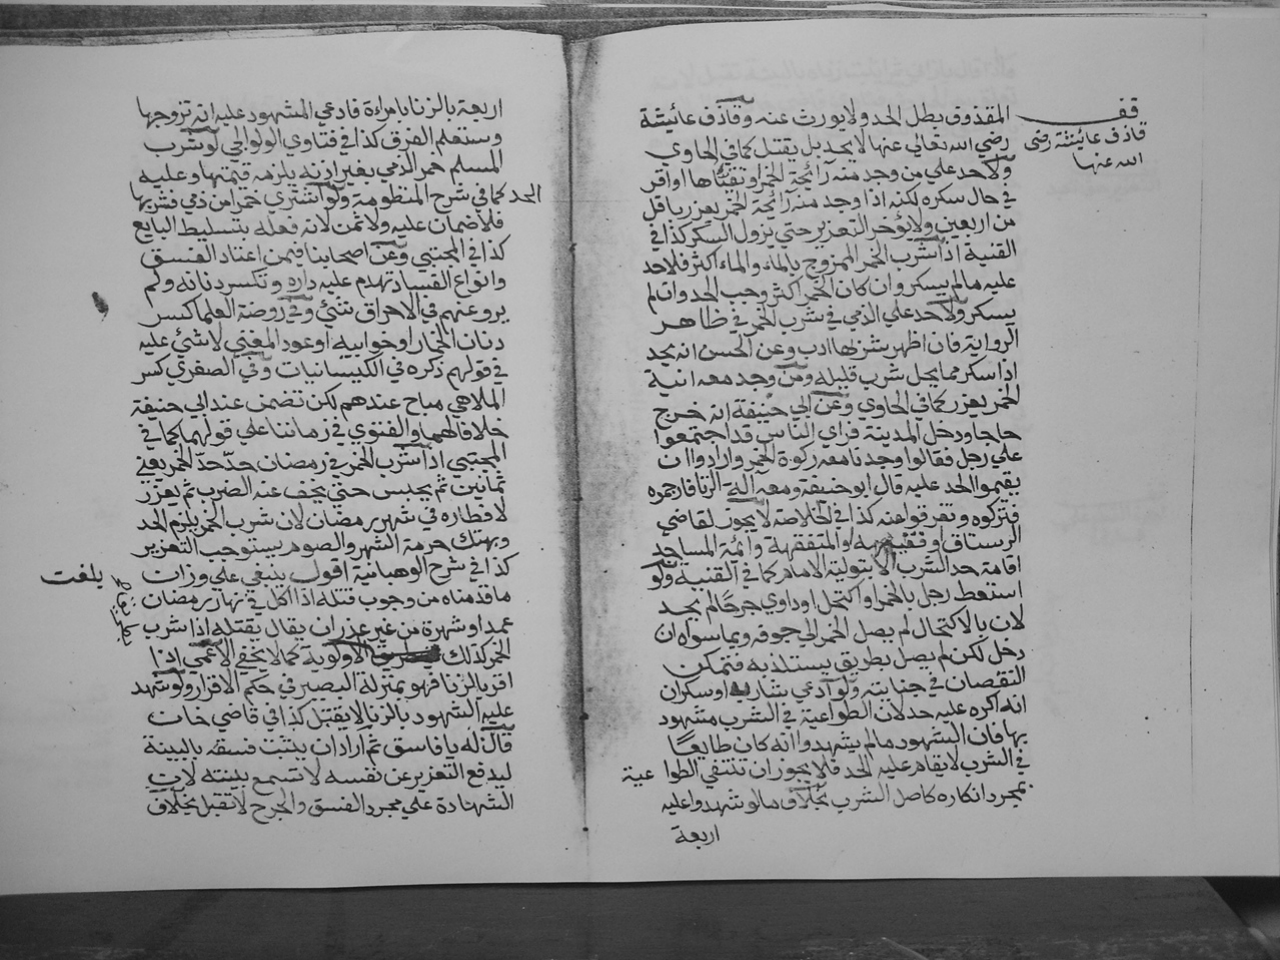 المقذوف بطل الحد ولا يورث عنه وقاذف عائشة
رضي الله تعالى عنها لا يحد بل يقتل كما في الحاوي
ولا حد علي من وجد منه رائحة الخمر او تقياها او اقر
في حال سكره لكنه اذا وجد منه رائحة الخمر يعزر باقل
من اربعين ولا يؤخر التعزير حتي يزول السكر كذا في
القنية اذا شرب الخمر الممزوج بالماء والماء اكثر فلا حد
عليه مالم يسكر وان كان الخمر اكثر وجب الحد وان لم
يسكر ولا حد علي الذمي في شرب الخمر في ظاهر
الرواية فان اظهر شربها ادب وعن الحسن انه يحد
اذا سكر مما يحل شرب قليله ومن وجد معه انية
الخمر يعزر كما في الحاوي وعن ابي حنيفة انه خرج
حاجا ودخل المدينة فراي الناس قد اجتمعوا
علي رجل فقالوا وجدنا معه ركوة الخمر وارادوا ان
يقيموا الحد عليه قال ابو حنيفة ومعه آلة الزنا فارجموه
فتركوه وتفرقوا عنه كذا في الخلاصة لا يجوز لقاضي
الرستاق او فقيهه او المتفقهة وائمة المساجد
اقامة حد الشرب الا بتولية الامام كما في القنية ولو
استعط رجل بالخمر او اكتحل او داوي جرحا لم يحد
لان بالاكتحال لم يصل الخمر الي جوفه وبما سواه ان
دخل لكن لم يصل بطريق يستلذ به فتمكن
النقصان في جنايته ولو ادعي شارب او سكران
انه اكره عليه حد لان الطواعية في الشرب مشهود
بها فان الشهود مالم يشهدوا انه كان طايعا
في الشرب لا يقام عليه الحد فلا يجوز ان تنتفي الطواعية
بمجرد انكاره كاصل الشرب بخلاف مالو شهدوا عليه
اربعة
قف
قاذف عائشة رضى
الله عنها
اربعة بالزنا بامراءة فادعي المشهود عليه انه تزوجها
وستعلم الفرق كذا في فتاوي الولوالجي لو شرب
المسلم خمر الذمي بغير اذنه يلزمه قيمتها وعليه
الحد كما في شرح المنظومة ولو اشتري خمرا من ذمي فشربها
فلا ضمان عليه ولا ثمن لانه فعله بتسليط البايع
كذا في المجتبي وعن اصحابنا فيمن اعتاد الفسق
وانواع الفساد تهدم عليه داره وتكسر دنانه ولم
يرو عنهم في الاحراق شئ وفي روضة العلما كسر
دنان الخمار او خوابيه او عود المغني لا شئ عليه
في قولهم ذكره في الكيسانيات وفي الصغري كسر
الملاهي مباح عندهم لكن تضمن عند ابي حنيفة
خلافا لهما والفتوي في زماننا علي قولهما كما في
المجتبي اذا شرب الخمر في رمضان حد حد الخمر يعني
ثمانين ثم يحبس حتي يخف عنه الضرب ثم يعزر
لافطاره في شهر رمضان لان شرب الخمر يلزم الحد
وبهتك حرمة الشهر والصوم يستوجب التعزير
كذا في شرح الوهبانية اقول ينبغي علي وزان
ما قدمناه من وجوب قتله اذا اكل في نهار رمضان
عمدا وشهرة من غير عذر ان يقال بقتله اذا شرب
الخمر كذلك الاولوية كما لا يخفي الاعمي اذا
اقر بالزنا فهو بمنزلة البصير في حكم الاقرار ولو شهد
عليه الشهود بالزنا لا يقتل كذا في قاضي خان
قال له يا فاسق ثم اراد ان يثبت فسقه بالبينة
ليدفع التعزير عن نفسه لا تسمع بينته لان
الشهادة علي مجرد الفسق والجرح لا تقبل بخلاف
بلغت